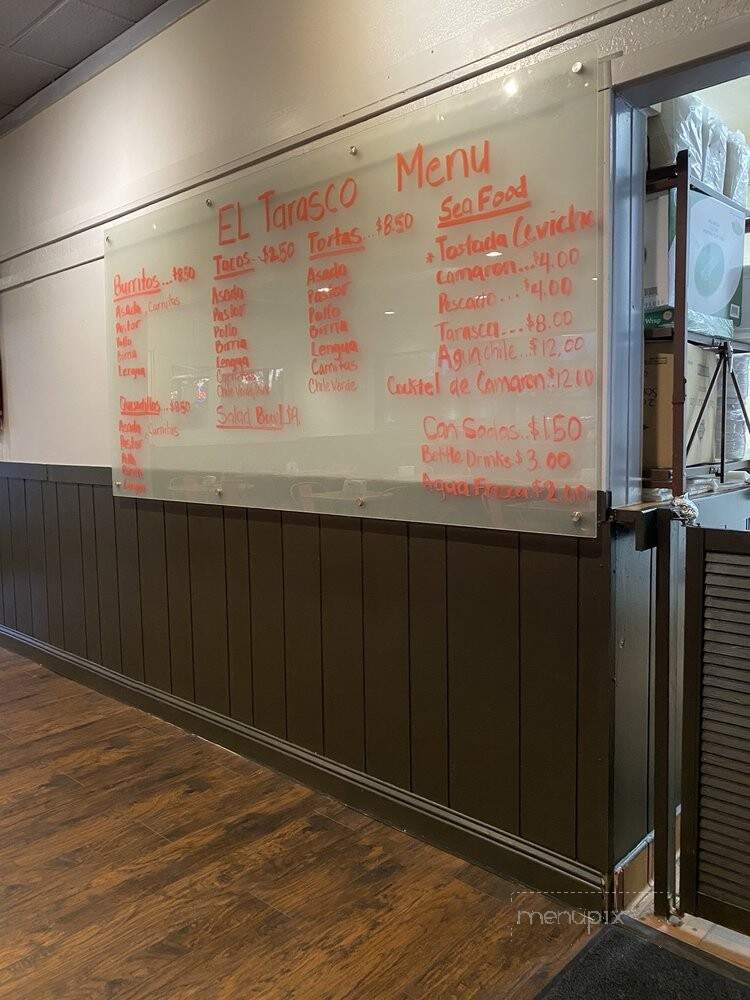 EL Tarasco Menu
Burritos...$8.50
Asada, Carnitas
Pastor
Pollo
Birria
Lengua
Quesadillas...$8.50
Asada, Carnitas
Pastor
Pollo
Birria
Lengua
Tacos...$2.50
Asada
Pastor
Pollo
Birria
Lengua
Carnitas
Chile Verde
Salad Bowl $9
Tortas...$8.50
Asada
Pastor
Pollo
Birria
Lengua
Carnitas
Chile Verde
Sea Food
* Tostada Ceviche
Camaron...$4.00
Pescado...$4.00
Tarasca...$8.00
Aguachile...$12.00
Cocktel de Camaron $12.00
Can Sodas..$1.50
Bottle Drinks $3.00
Agua Fresca $2.00
menupix